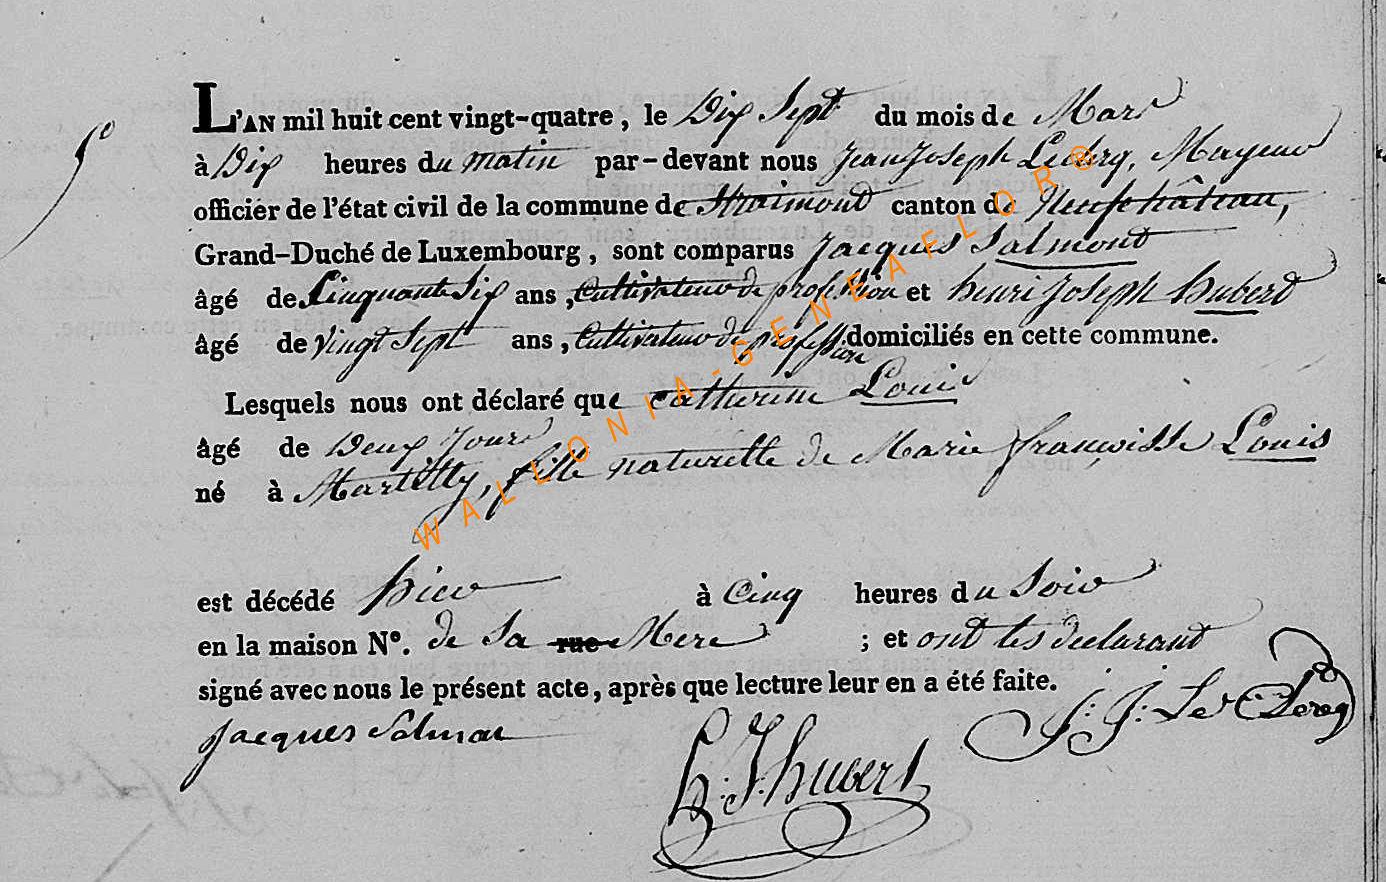 5°
L'AN mil huit cent vingt-quatre, le Dix Sept du mois de Mars
à Dix heures du matin par-devant nous Jean Joseph Leclerq, Mayeur
officier de l'état civil de la commune de Straimont canton de Neufchâteau,
Grand-Duché de Luxembourg, sont comparus Jacques Salmont
âgé de Cinquante Six ans, Cultivateur de profession et henri Joseph hubert
âgé de Vingt Sept ans, Cultivateur de profession domiciliés en cette commune.
Lesquels nous ont déclaré que catherine Louis
âgé de Deux Jours
né à Martilly, fille naturelle de Marie françoisse Louis
est décédé hier à Cinq heures du Soir
en la maison N°. de Sa rue Mere ; et ont les declarant
signé avec nous le présent acte, après que lecture leur en a été faite.
Jacques Salmon
h: J: hubert
J: J: Le Clercq
WALLONIA-GENEAFLOR®